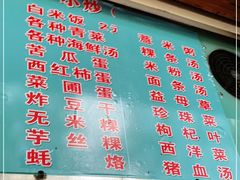 小炒（
白米饭 2元
各种青菜
各种海鲜汤
苦瓜蛋
西红柿蛋
菜蛋
炸豆干
无米粿
芋丝粿
蚝烙
薏米粥
粿条汤
米粉汤
面条汤
益母草
珍珠菜
枸杞叶
西洋菜
猪血汤